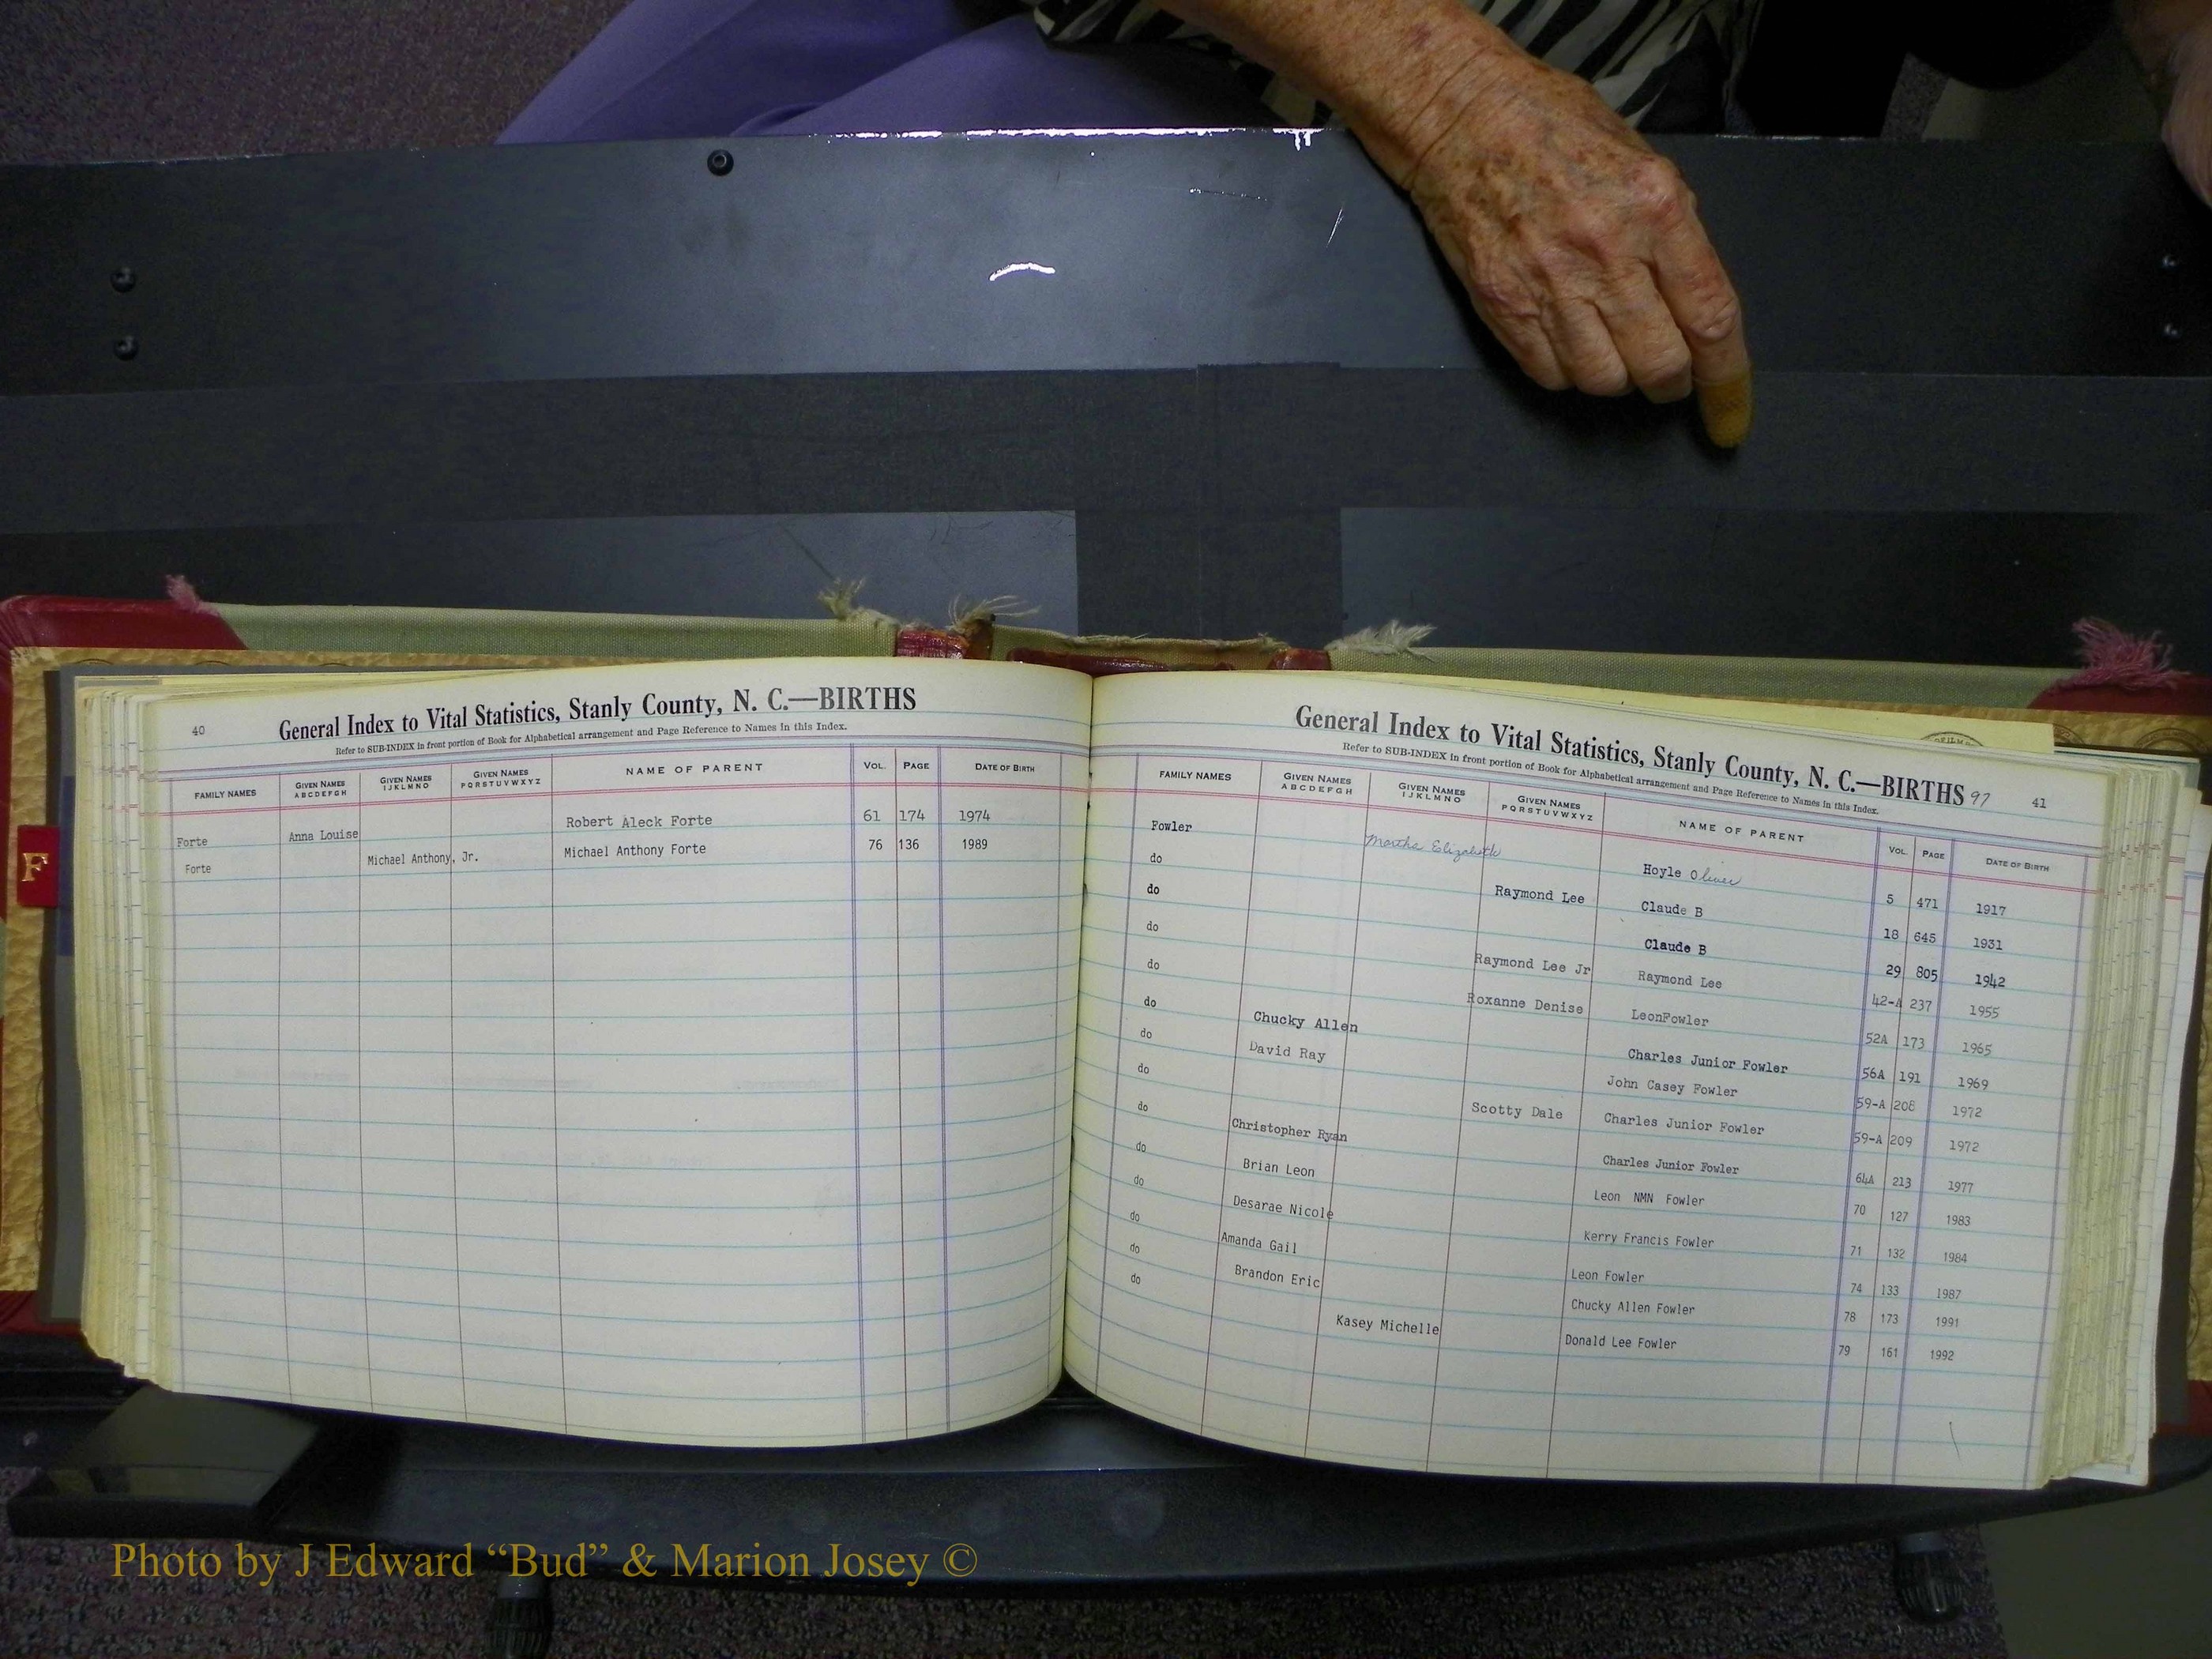 40
General Index to Vital Statistics, Stanly County, N. C.—BIRTHS
Refer to SUB-INDEX in front portion of Book for Alphabetical arrangement and Page Reference to Names in this Index.
FAMILY NAMES GIVEN NAMES ABCDEFGH GIVEN NAMES IJKLMNO GIVEN NAMES PQRSTUVWXYZ NAME OF PARENT VOL. PAGE DATE OF BIRTH
Forte Anna Louise Robert Aleck Forte 61 174 1974
Forte Michael Anthony, Jr. Michael Anthony Forte 76 136 1989
F
General Index to Vital Statistics, Stanly County, N. C.—BIRTHS 97 41
Refer to SUB-INDEX in front portion of Book for Alphabetical arrangement and Page Reference to Names in this Index.
FAMILY NAMES GIVEN NAMES ABCDEFGH GIVEN NAMES IJKLMNO GIVEN NAMES PQRSTUVWXYZ NAME OF PARENT VOL. PAGE DATE OF BIRTH
Fowler Martha Elizabeth Hoyle Oliver 5 471 1917
do Raymond Lee Claude B 18 645 1931
do Claude B 29 805 1942
do Raymond Lee Jr Raymond Lee 42-A 237 1955
do Roxanne Denise LeonFowler 52A 173 1965
do Chucky Allen Charles Junior Fowler 56A 191 1969
do David Ray John Casey Fowler 59-A 208 1972
do Scotty Dale Charles Junior Fowler 59-A 209 1972
do Christopher Ryan Charles Junior Fowler 64A 213 1977
do Brian Leon Leon NMN Fowler 70 127 1983
do Desarae Nicole Kerry Francis Fowler 71 132 1984
do Amanda Gail Leon Fowler 74 133 1987
do Brandon Eric Chucky Allen Fowler 78 173 1991
do Kasey Michelle Donald Lee Fowler 79 161 1992
Photo by J Edward “Bud” & Marion Josey ©